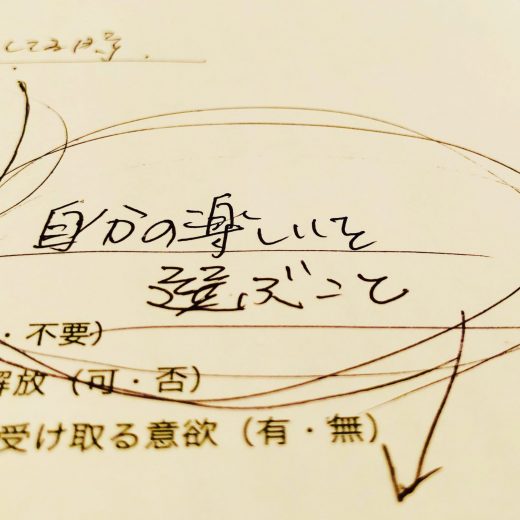 自分の楽しいを
選ぶこと
・不要）
解放（可・否）
受け取る意欲（有・無）